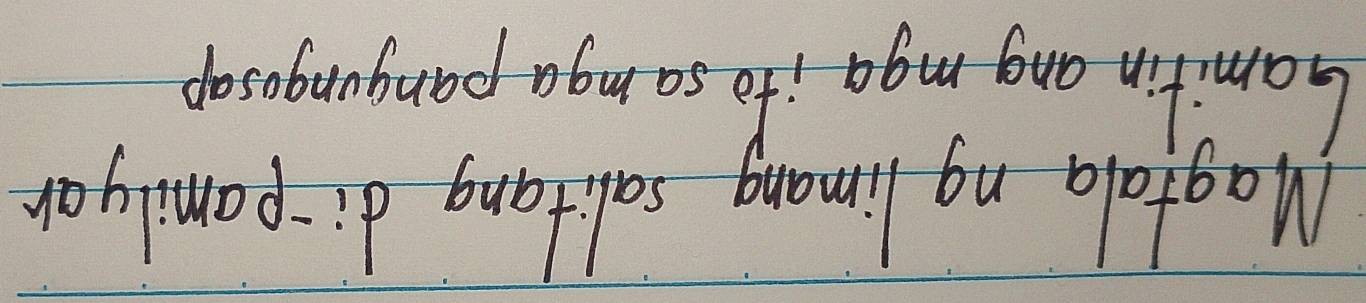 Magtala ng limang salitang di-pamilyar.
Gamitin ang mga ito sa mga pangungusap